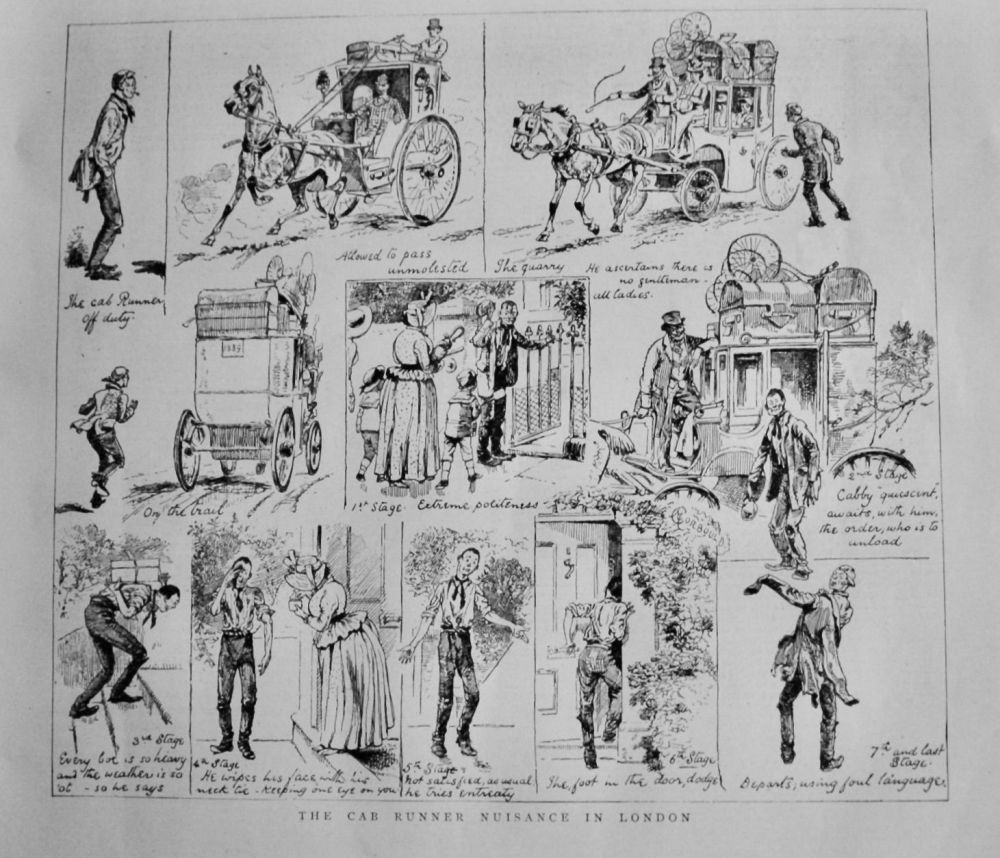 The cab Runner
off duty.
Allowed to pass
unmolested
The quarry
He ascertains there is
no gentleman -
all ladies.
1889
On the trail
1st Stage. Extreme politeness
2nd Stage
Cabby quiescent,
awaits, with him,
the order, who is to
unload
3rd Stage
Every box is so heavy
and the weather is so
'ot - so he says
4th Stage
He wipes his face with his
neck tie - Keeping one eye on you
5th Stage
Not satisfied, as usual,
he tries entreaty
6th Stage
The, foot in the door, dodge
7th and last
Stage.
Departs, using foul language.
THE CAB RUNNER NUISANCE IN LONDON